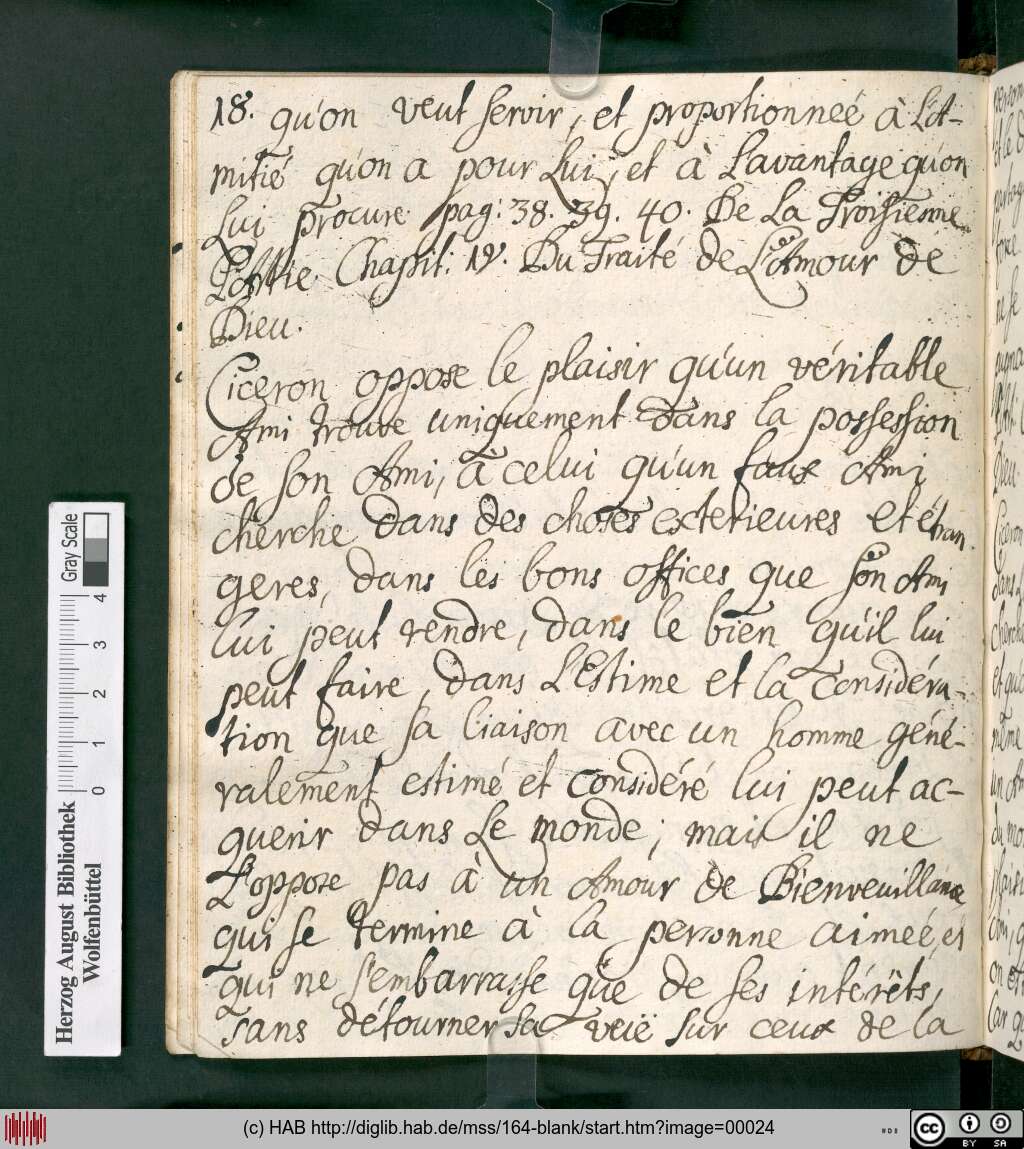 18. qu'on veut servir, et proportionneé à L'A-
mitié qu'on a pour Lui, et à L'avantage qu'on
Lui procure pag: 38. 39. 40. De La Troisiesme
Partie Chapit: IV. Du Traité de L'Amour de
Dieu.
Ciceron oppose le plaisir qu'un véritable
Ami trouve uniquement dans la possession
de son Ami, à celui qu'un faux Ami
cherche dans des choses exterieures et étran-
geres, dans les bons offices que son Ami
lui peut rendre, dans le bien qu'il lui
peut faire, dans L'Estime et la considéra-
tion que sa liaison avec un homme géné-
ralement estimé et considéré lui peut ac-
querir dans Le monde; mais il ne
L'oppose pas à un Amour de Bienveuillance
qui se termine à la personne aimeé, et
qui ne s'embarrasse que de ses intérëts,
sans détourner sa veüe sur ceux de la
Gray Scale
0 1 2 3 4
Herzog August Bibliothek
Wolfenbüttel
(c) HAB http://diglib.hab.de/mss/164-blank/start.htm?image=00024
cc BY SA